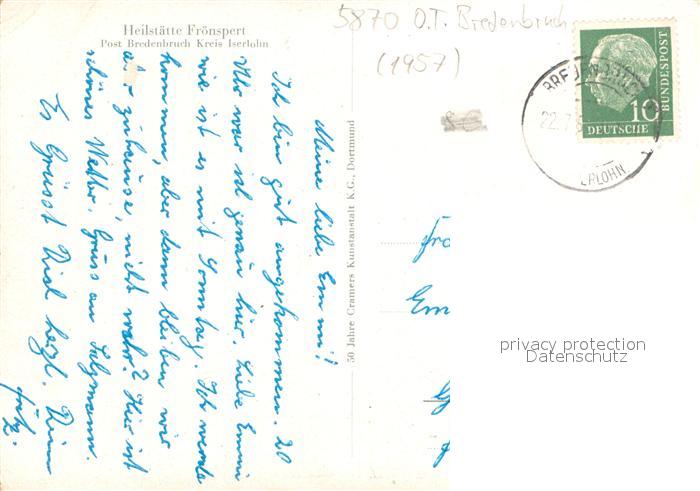 Heilstätte Frönspert
Post Bredenbruch Kreis Iserlohn
5870 O.T. Bredenbruch
(1957)
Meine liebe Emmi!
Ich bin gut angekommen. 20
Uhr war ich genau hier. Liebe Emmi
wie ist es mit Sonntag. Ich werde
kommen, aber dann bleiben wir
zuhause, nicht wahr? Hier ist
schönes Wetter. Gruss an Salzmann.
Es Grüsst Dich herzl. Dein
Fritz.
50 Jahre Cramers Kunstanstalt K.G., Dortmund
22.7.
ERLOHN
10
DEUTSCHE
BUNDESPOST
Fro
Em
privacy protection
Datenschutz